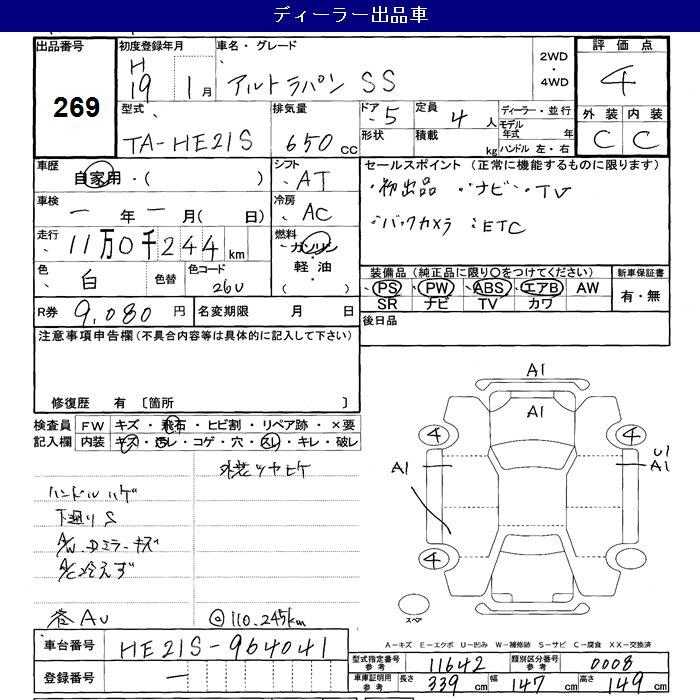 ディーラー出品車
出品番号 269
初度登録年月 H19 1月
車名・グレード アルトラパン SS
2WD・4WD
評価点 4
外装 内装
C C
型式 TA-HE21S
排気量 650 CC
ドア 5
定員 4 人
形状
積載 kg
ディーラー・並行
モデル年式 年
ハンドル 左・右
車歴 自家用・( )
シフト AT
セールスポイント (正常に機能するものに限ります)
・初出品 ・ナビ・TV
・バックカメラ ・ETC
車検 ー 年 ー 月( 日)
冷房 AC
走行 11万0千244 km
燃料 ガソリン・軽油・( )
色 白 色替
色コード 26U
装備品 (純正品に限り○をつけてください)
新車保証書
PS PW ABS エアB AW
SR ナビ TV カワ
有・無
R券 9,080 円
名変期限 月 日
後日品
注意事項申告欄(不具合内容等は具体的に記入して下さい)
修復歴 有 〔箇所 〕
検査員記入欄
FW キズ・飛石・ヒビ割・リペア跡・×要
内装 キズ・汚レ・コゲ・穴・スレ・キレ・破レ
外装ツヤヒケ
ハンドルハゲ
下廻りS
A/W、Dミラーキズ
A/C冷えず
A1
A1
4 4
A1
U1
A1
4
スペア
巻AU
◎110,245km
A-キズ E-エクボ U-凹み W-補修跡 S-サビ C-腐食 XX-交換済
車台番号 HE21S-964041
登録番号 ー
型式指定番号 参考 11642
類別区分番号 参考 0008
車庫証明用 参考 長さ 339 cm 幅 147 cm 高さ 149 cm